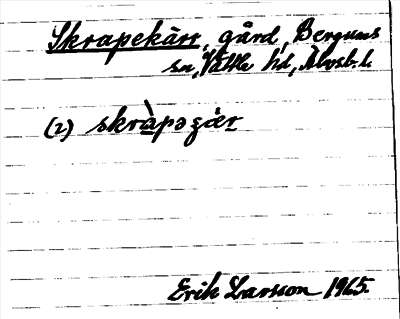 Skrapekärr, gård, Bergums
sn, Vättle hd, Älvsb. l.
(2) skràpəʒǽr
Erik Larsson 1965.